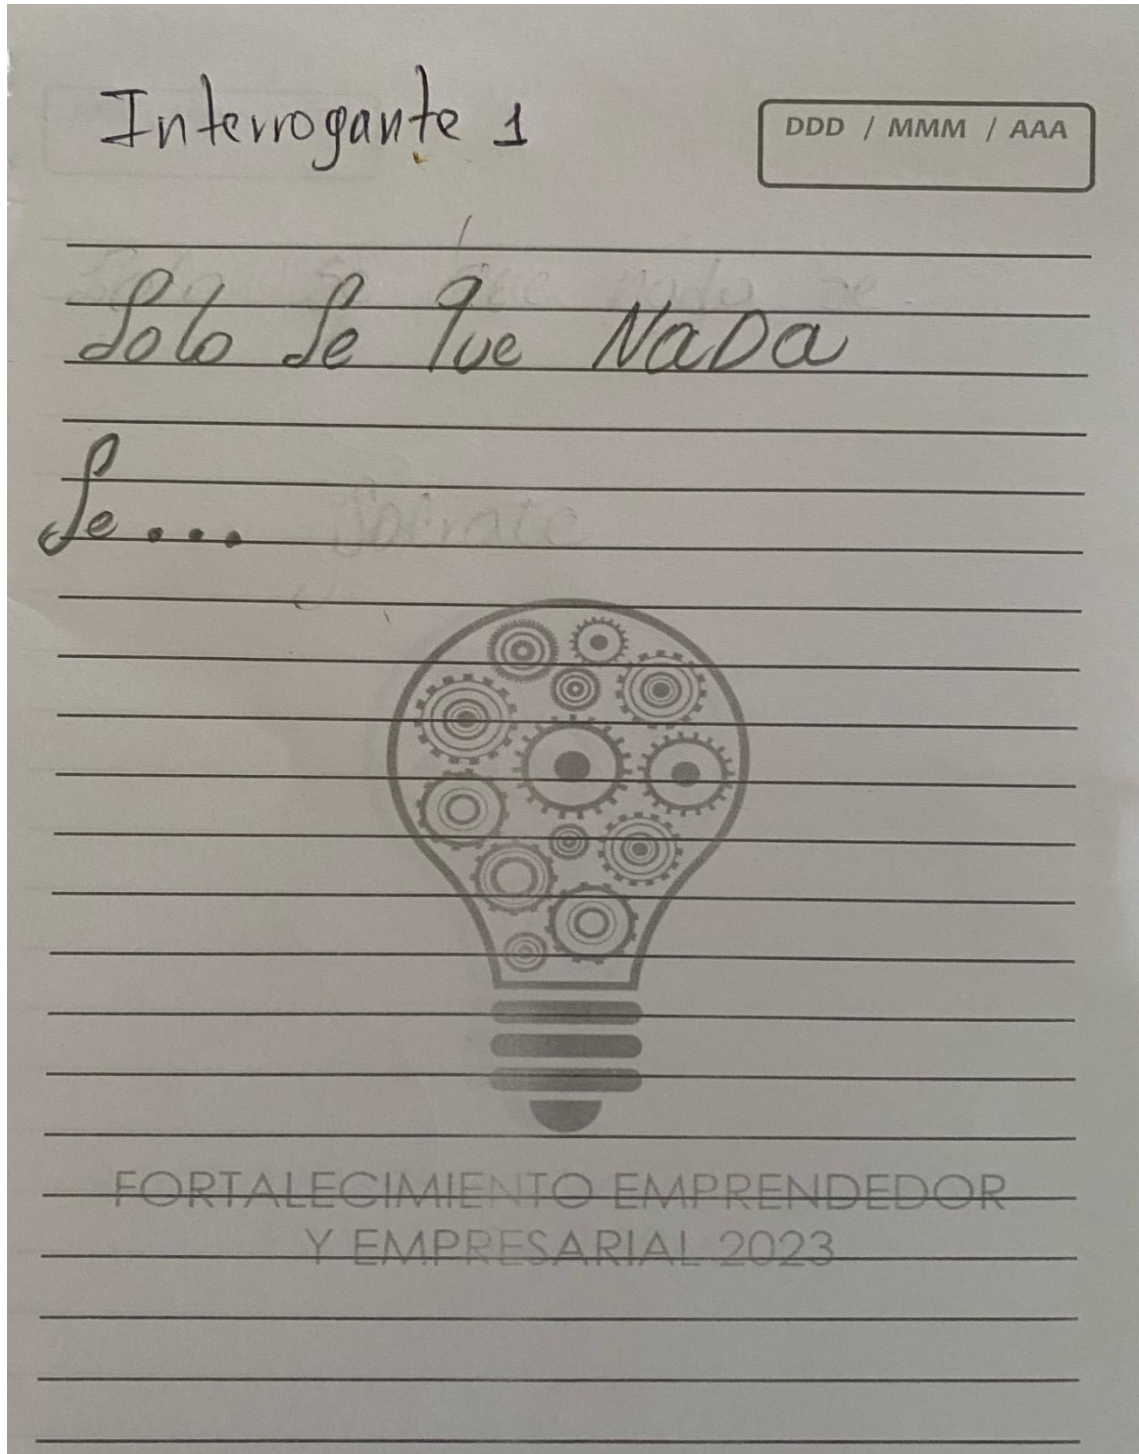 Interrogante 1
DDD / MMM / AAA
Solo se que NaDa
Se...
Socrate
FORTALECIMIENTO EMPRENDEDOR
Y EMPRESARIAL 2023